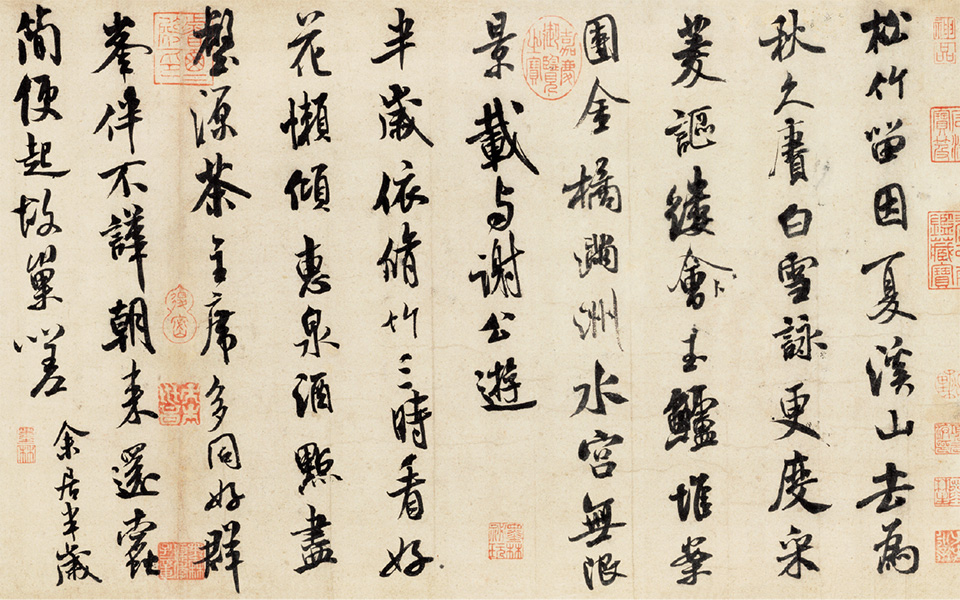 松竹留因夏溪山去為
秋久賡白雪詠更度采
菱謳縷會玉鱸堆案
團金橘滿洲水宮無限
景載与謝公遊
半歲依脩竹三時看好
花懶傾惠泉酒點盡
壑源茶主席多同好群
峯伴不譁朝来還蠹
簡便起故巢嗟
余居半歲
神品
嘉慶御覽之寶